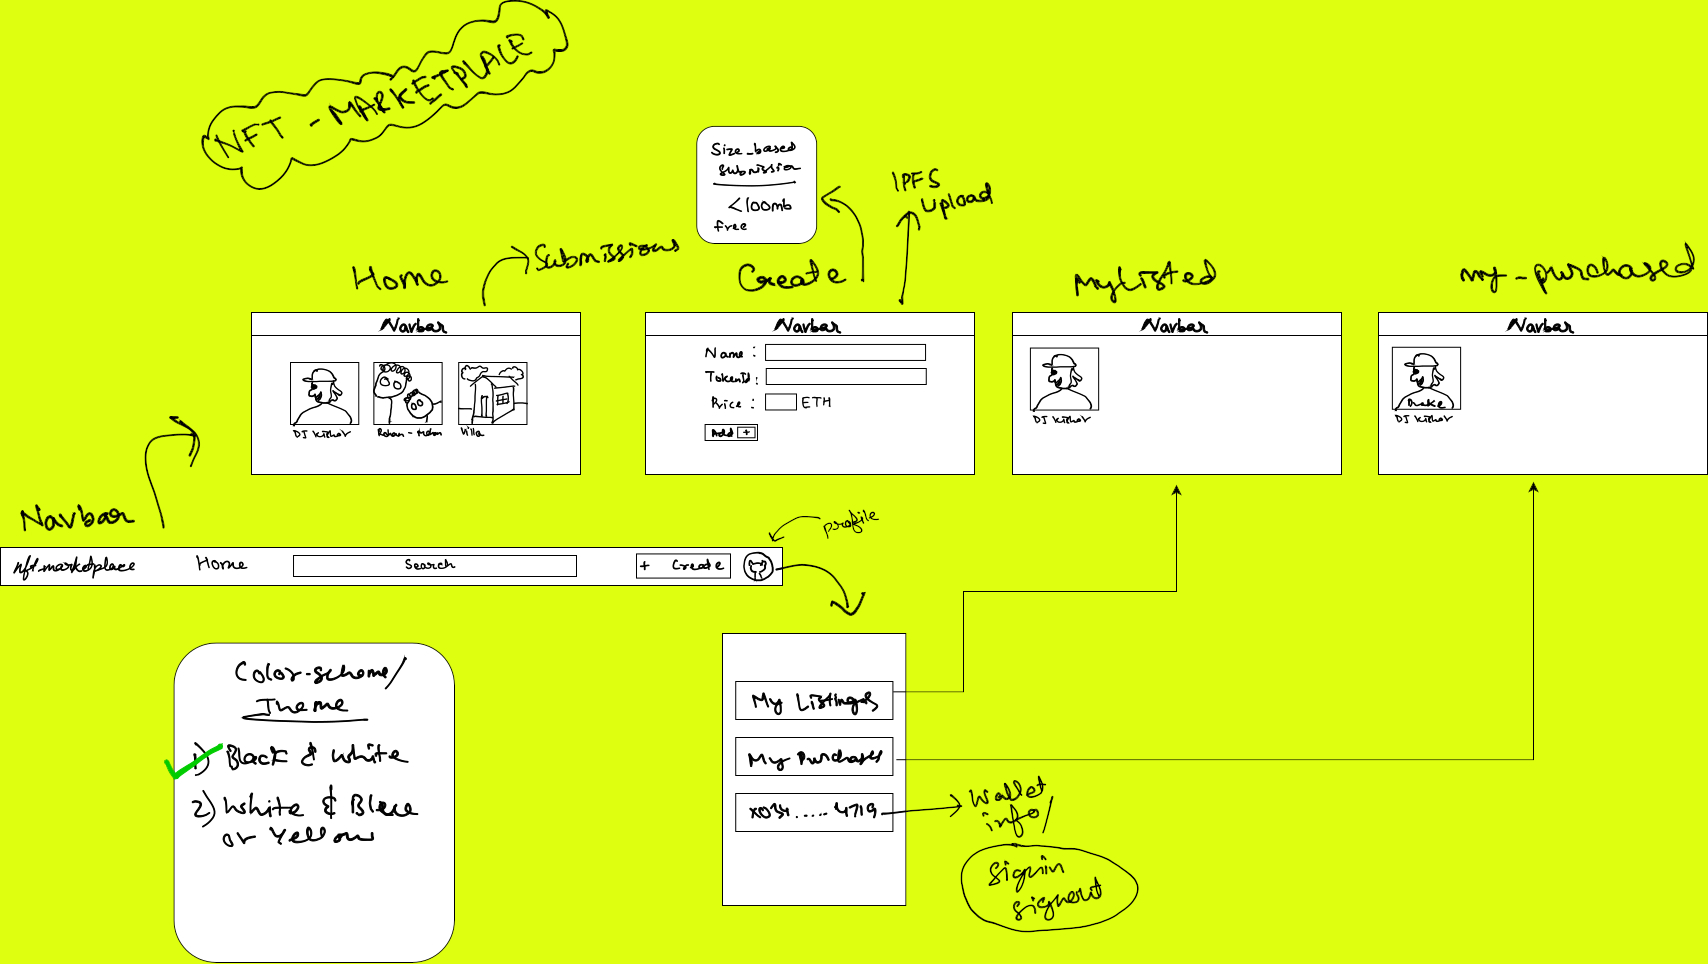 NFT - MARKETPLACE
Size_based
submission
<100mb
free
IPFS
Upload
Home
Submissions
Create
MyListed
my_purchased
Navbar
DJ Kishor
Rohan - Mohan
Villa
Navbar
Name :
TokenId :
Price :
ETH
Add +
Navbar
DJ Kishor
Navbar
Drake
DJ Kishor
Navbar
profile
nft-marketplace
Home
Search
+ Create
Color-scheme/
Theme
1) Black & White
2) White & Blue
or Yellow
My Listings
My Purchases
x034.....4719
Wallet
info/
Signin
Signout